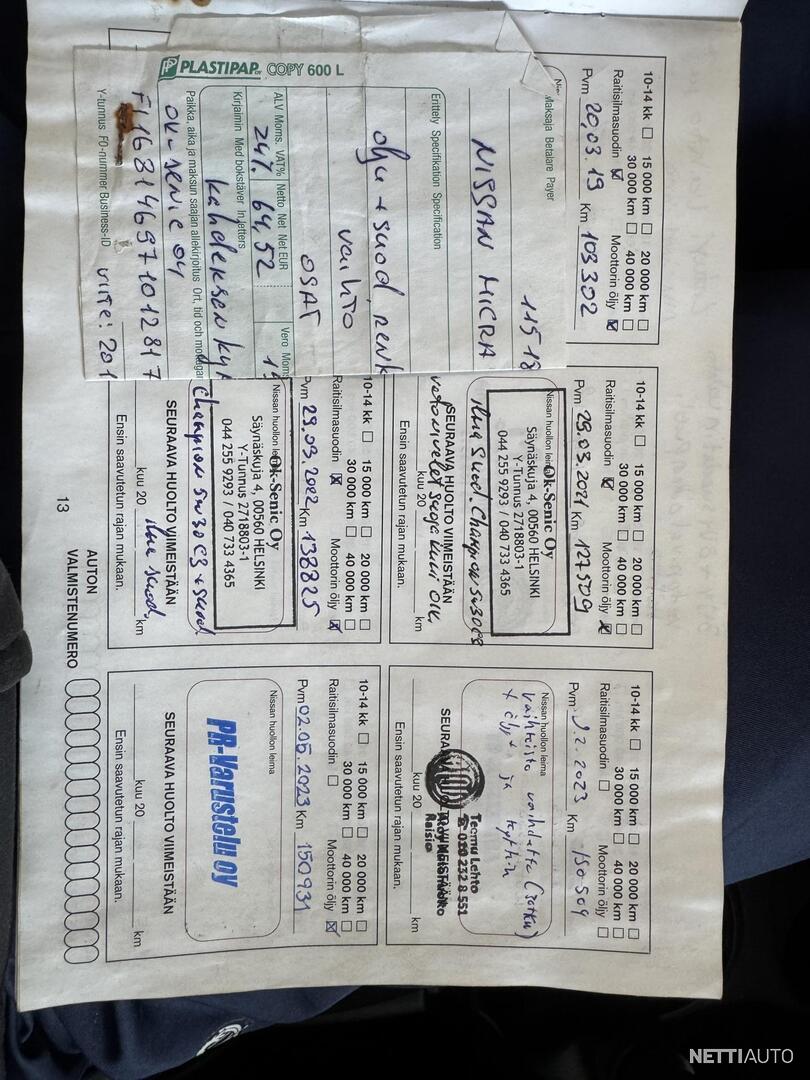 PLASTIPAP OY COPY 600 L
Maksaja Betalare Payer
NISSAN MICRA
115-18
Erittely Specifikation Specification
olju + suod, renk
vaihto
OSAT
ALV Moms. VAT% Netto Net Net EUR
Vero Moms
24% 64,52
Kirjaimin Med bokstäver In letters
kahdeksen ky
Paikka, aika ja maksun saajan allekirjoitus Ort, tid och
OK-Senic oy
FI1681469710128 17
Y-tunnus FO-nummer Business-ID
viite: 201
10-14 kk 15 000 km 20 000 km
30 000 km 40 000 km
Raitisilmasuodin Moottorin öljy
Pvm 20,03.19 Km 103302
10-14 kk 15 000 km 20 000 km
30 000 km 40 000 km
Raitisilmasuodin Moottorin öljy
Pvm 29.03.2021 Km 127509
Nissan huollon leima
Ok-Senic Oy
Säynäskuja 4, 00560 HELSINKI
Y-Tunnus 2718803-1
044 255 9293 / 040 733 4365
ilma Suod. Champion 5w30 C3
SEURAAVA HUOLTO VIIMEISTÄÄN
vetonivelet suoja kumi oik.
kuu 20 km
Ensin saavutetun rajan mukaan.
10-14 kk 15 000 km 20 000 km
30 000 km 40 000 km
Raitisilmasuodin Moottorin öljy
Pvm 9.2.2023 Km 150509
Nissan huollon leima
vaihteisto vaihdettu (
+ öljyt ja
Teemu Lehto
☎ 020 232 8 551
Raisio
SEURAAVA HUOLTO VIIMEISTÄÄN
kuu 20 km
Ensin saavutetun rajan mukaan.
10-14 kk 15 000 km 20 000 km
30 000 km 40 000 km
Raitisilmasuodin Moottorin öljy
Pvm 29.03.2022 Km 138825
Nissan huollon leima
Ok-Senic Oy
Säynäskuja 4, 00560 HELSINKI
Y-Tunnus 2718803-1
044 255 9293 / 040 733 4365
Champion 5w30 C3 + suod.
SEURAAVA HUOLTO VIIMEISTÄÄN
ilma suod.
kuu 20 km
Ensin saavutetun rajan mukaan.
10-14 kk 15 000 km 20 000 km
30 000 km 40 000 km
Raitisilmasuodin Moottorin öljy
Pvm 02.05.2023 Km 150931
Nissan huollon leima
PR-Varustelu oy
SEURAAVA HUOLTO VIIMEISTÄÄN
kuu 20 km
Ensin saavutetun rajan mukaan.
13
AUTON
VALMISTENUMERO
NETTIAUTO